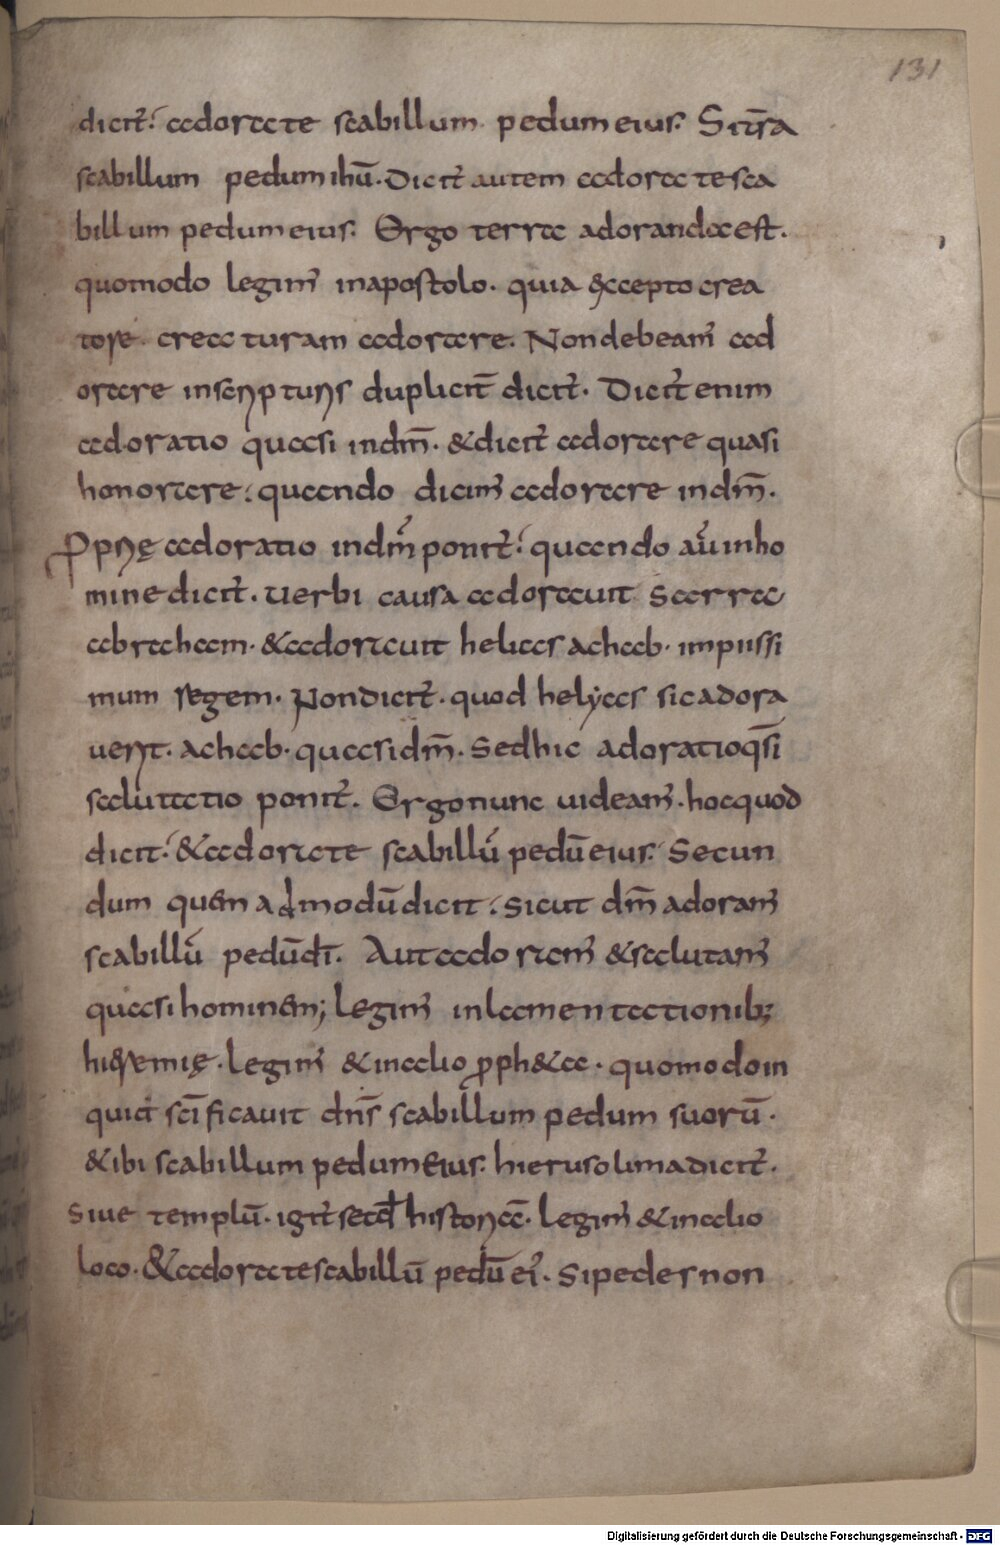 131
dicit̄. adorate scabillum pedum eius. Si t̄ra
scabillum pedum ihū. Dicit̄ autem adorate sca
billum pedum eius. Ergo terra adoranda est.
quomodo legim̄ in apostolo. quia excepto crea
tore creaturam adorare. Non debeam̄ ad
orare in scripturis duplicit̄ dicit̄. Dicit̄ enim
adoratio quasi in dm̄. & dicit̄ adorare quasi
honorare. quando dicim̄ adorare in dm̄.
Pprię adoratio in dm̄ ponit̄. quando au in ho
mine dicit̄. Uerbi causa adorauit sarra
abraham. & adorauit helias achab. impiissi
mum regem. Non dicit̄. quod helyas sic adora
uerit. achab. quasi dm̄. Sed hic adoratio q̄si
salutatio ponit̄. Ergo nunc uideam̄. hoc quod
dicit. & adorate scabillū pedū eius. Secun
dum quem admodū dicit. sicut dm̄ adoram̄
scabillū pedū dī. Aut adorem̄ & salutam̄
quasi hominem; legim̄ in lamentationib;
hieremię. legim̄ & in alio pph&a. quomodo in
quid sc̄ificauit dn̄s scabillum pedum suorū.
& ibi scabillum pedum eius. hierusolima dicit̄.
Siue templū. igit̄ secd̄ historia. legim̄ & in alio
loco. & adorate scabillū pedū ei. Si pedes non
Digitalisierung gefördert durch die Deutsche Forschungsgemeinschaft - DFG